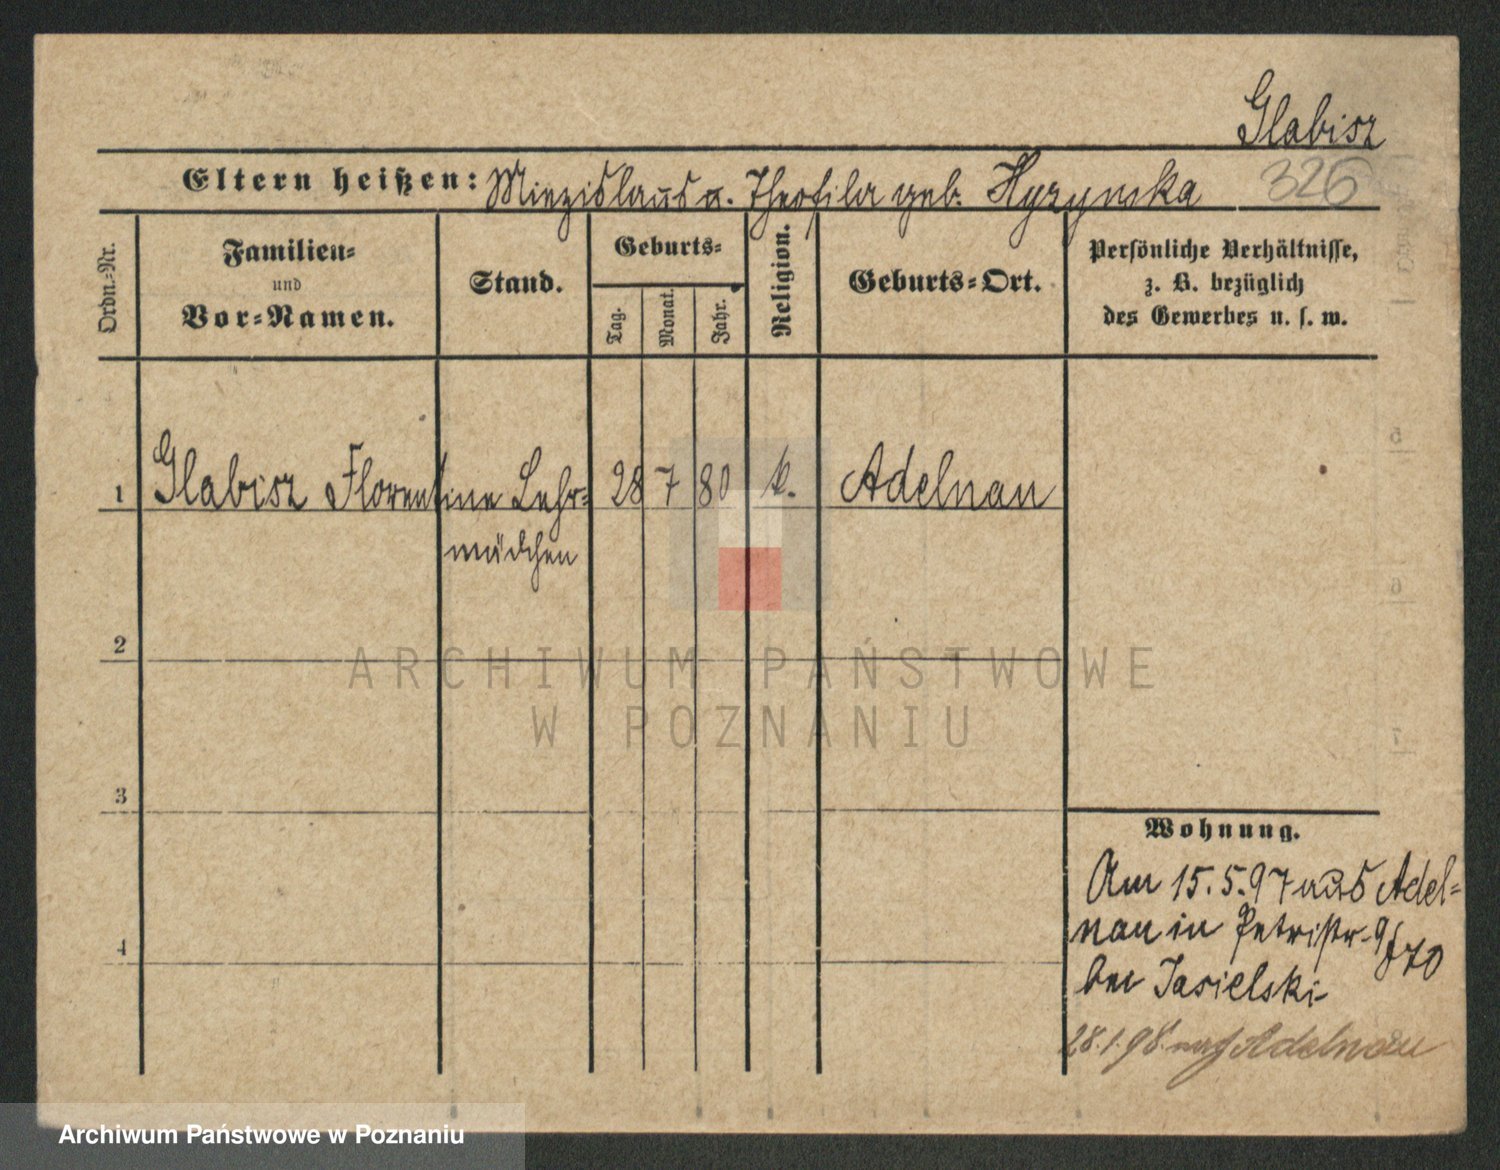 Glabisz
Eltern heißen: Miezislaus u. Theofila geb. Hyzynska
326
Ordn.-Nr.
Familien-
und
Vor-Namen.
Stand.
Geburts-
Tag.
Monat.
Jahr.
Religion.
Geburts-Ort.
Persönliche Verhältnisse,
z. B. bezüglich
des Gewerbes u. s. w.
1 Glabisz Florentine Lehr- 28 7 80 k. Adelnau
mädchen
2
ARCHIWUM PAŃSTWOWE
W POZNANIU
3
Wohnung.
Am 15.5.97 aus Adel-
nau in Petristr. 9/70
bei Jasielski
4
28.1.98 nach Adelnau
Archiwum Państwowe w Poznaniu